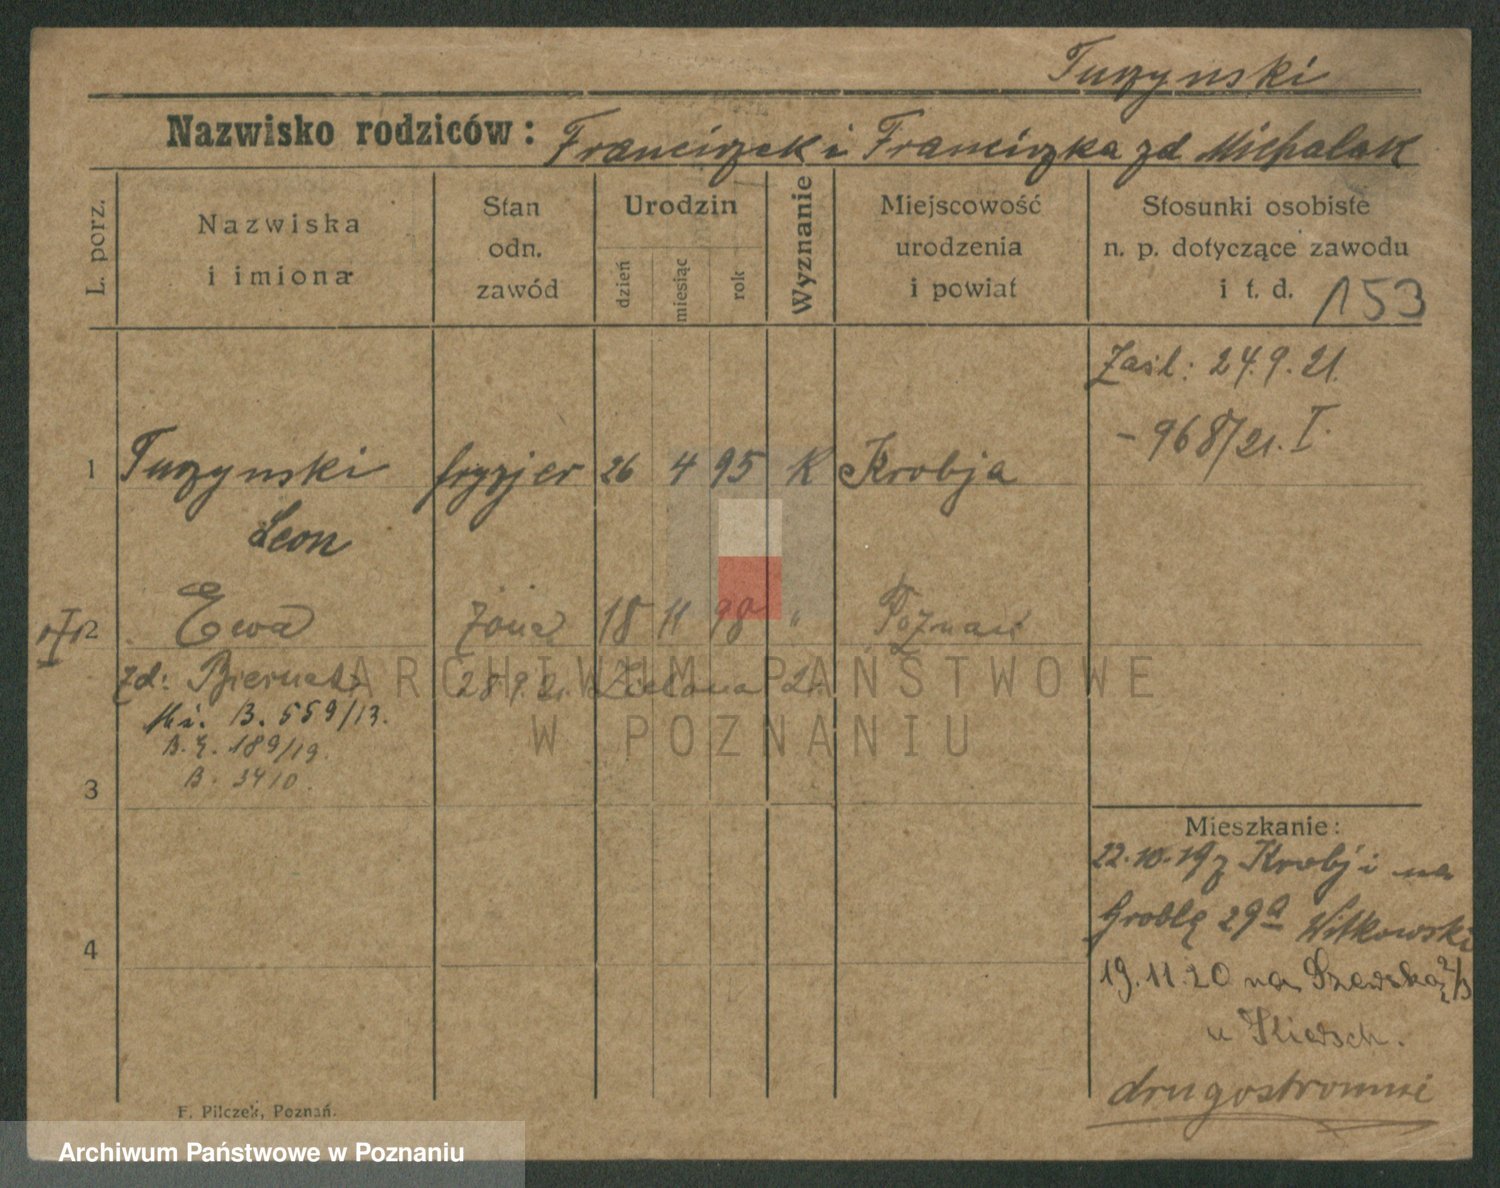 Turzynski
Nazwisko rodziców: Franciszek i Franciszka zd Michalak
L. porz.
Nazwiska
i imiona
Stan
odn.
zawód
Urodzin
dzień
miesiąc
rok
Wyznanie
Miejscowość
urodzenia
i powiat
Stosunki osobiste
n. p. dotyczące zawodu
i t. d. 153
Zaśl: 24.9.21.
- 968/21. I.
1 Turzynski fryzjer 26 4 95 K Krobja
Leon
2 Ewa żona 18 11 98 " Poznań
zd: Biernat 28.9.21. Zielona 2.
B. 559/13.
189/19.
B. 3410.
3
4
Mieszkanie:
22.10.19 z Krobji na
Groblę 29a Witkowski
19.11.20 na Szewską
u
drugostronnie
F. Pilczek, Poznań.
ARCHIWUM PAŃSTWOWE
W POZNANIU
Archiwum Państwowe w Poznaniu